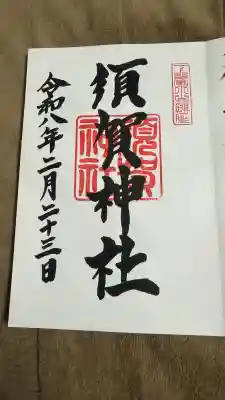 須賀神社
令和八年二月二十三日
須賀神社